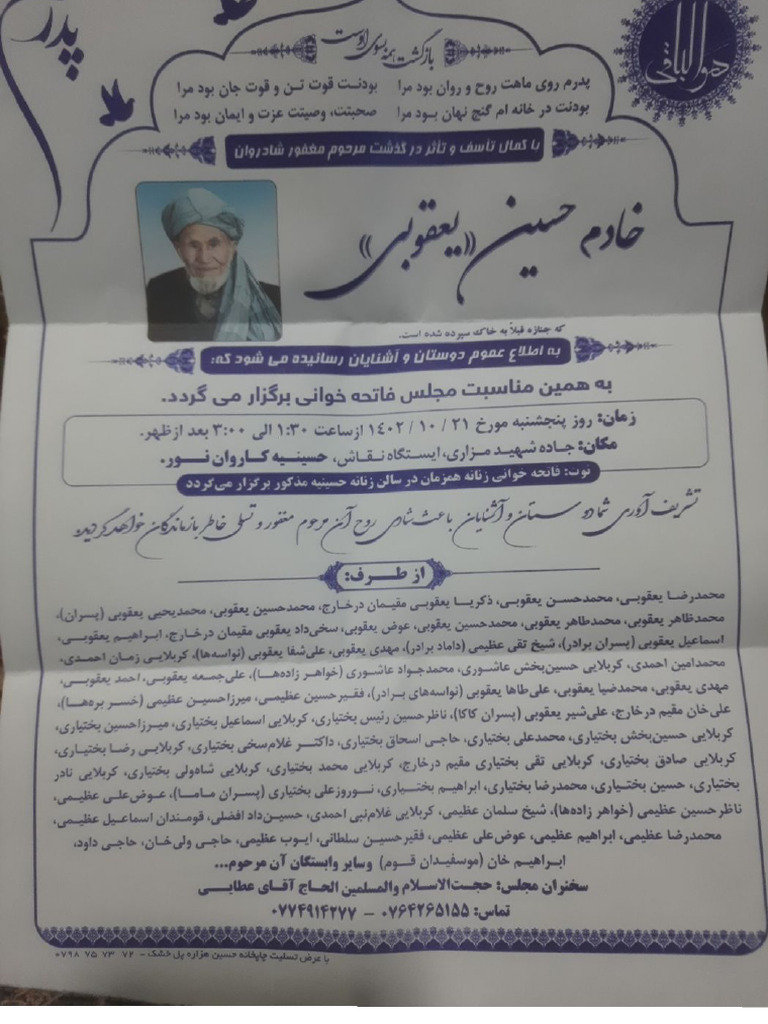 پدر
هوالباقی
بازگشت همه بسوی اوست
پدرم روی ماهت روح و روان بود مرا بودنت قوت تن و قوت جان بود مرا
بودنت در خانه ام گنج نهان بود مرا صحبتت، وصیتت عزت و ایمان بود مرا
با کمال تأسف و تأثر درگذشت مرحوم مغفور شادروان
خادم حسین «یعقوبی»
که جنازه قبلاً به خاک سپرده شده است.
به اطلاع عموم دوستان و آشنایان رسانیده می شود که:
به همین مناسبت مجلس فاتحه خوانی برگزار می گردد.
زمان: روز پنجشنبه مورخ ۲۱ / ۱۰ / ۱۴۰۲ از ساعت ۱:۳۰ الی ۳:۰۰ بعد از ظهر.
مکان: جاده شهید مزاری، ایستگاه نقاش، حسینیه کاروان نور.
نوت: فاتحه خوانی زنانه همزمان در سالن زنانه حسینیه مذکور برگزار می گردد
تشریف آوری شما دوستان و آشنایان باعث شادی روح آن مرحوم مغفور و تسلی خاطر بازماندگان خواهد گردید
از طرف:
محمدرضا یعقوبی، محمدحسن یعقوبی، ذکریا یعقوبی مقیمان درخارج، محمدحسین یعقوبی، محمدیحیی یعقوبی (پسران)،
محمدظاهر یعقوبی، محمدطاهر یعقوبی، محمدحسین یعقوبی، عوض یعقوبی، سخی‌داد یعقوبی مقیمان درخارج، ابراهیم یعقوبی،
اسماعیل یعقوبی (پسران برادر)، شیخ تقی عظیمی (داماد برادر)، مهدی یعقوبی، علی‌شفا یعقوبی (نواسه‌ها)، کربلایی زمان احمدی،
محمدامین احمدی، کربلایی حسین‌بخش عاشوری، محمدجواد عاشوری (خواهر زاده‌ها)، علی‌جمعه یعقوبی، احمد یعقوبی،
مهدی یعقوبی، محمدضیا یعقوبی، علی‌طاها یعقوبی (نواسه‌های برادر)، فقیرحسین عظیمی، میرزاحسین عظیمی (خسر بره‌ها)،
علی‌خان مقیم درخارج، علی‌شیر یعقوبی (پسران کاکا)، ناظرحسین رئیس بختیاری، کربلایی اسماعیل بختیاری، میرزاحسین بختیاری،
کربلایی حسین‌بخش بختیاری، محمدعلی بختیاری، حاجی اسحاق بختیاری، داکتر غلام‌سخی بختیاری، کربلایی رضا بختیاری،
کربلایی صادق بختیاری، کربلایی تقی بختیاری مقیم درخارج، کربلایی محمد بختیاری، کربلایی شاه‌ولی بختیاری، کربلایی نادر
بختیاری، حسین بختیاری، محمدرضا بختیاری، ابراهیم بختیاری، نوروزعلی بختیاری (پسران ماما)، عوض‌علی عظیمی،
ناظرحسین عظیمی (خواهر زاده‌ها)، شیخ سلمان عظیمی، کربلایی غلام‌نبی احمدی، حسین‌داد افضلی، قومندان اسماعیل عظیمی،
محمدرضا عظیمی، ابراهیم عظیمی، عوض‌علی عظیمی، فقیرحسین سلطانی، ایوب عظیمی، حاجی ولی‌خان، حاجی داود،
ابراهیم خان (موسفیدان قوم) وسایر وابستگان آن مرحوم...
سخنران مجلس: حجت‌الاسلام والمسلمین الحاج آقای عطایی
تماس: ۰۷۶۴۲۶۵۱۵۵ – ۰۷۷۴۹۱۴۲۷۷
با عرض تسلیت چاپخانه حسین هزاره پل خشک – ۷۲ ۷۳ ۷۵ ۰۷۹۸